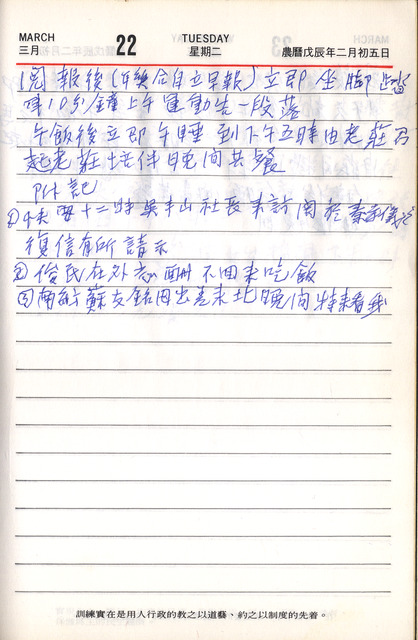 MARCH
三月
22
TUESDAY
星期二
農曆戊辰年二月初五日
閱報後(聯合自立早報)立即坐腳踏
車10分鐘上午運動告一段落
午飯後立即午睡到下午五時由老莊
起老莊 伴晚間共餐
附記
① 十二時吳丰山社長來訪關於
復信有所請示
② 俊民在外 不回來吃飯
③ 蘇友銘因出差來北晚間特來看我
訓練實在是用人行政的教之以道藝、約之以制度的先着。